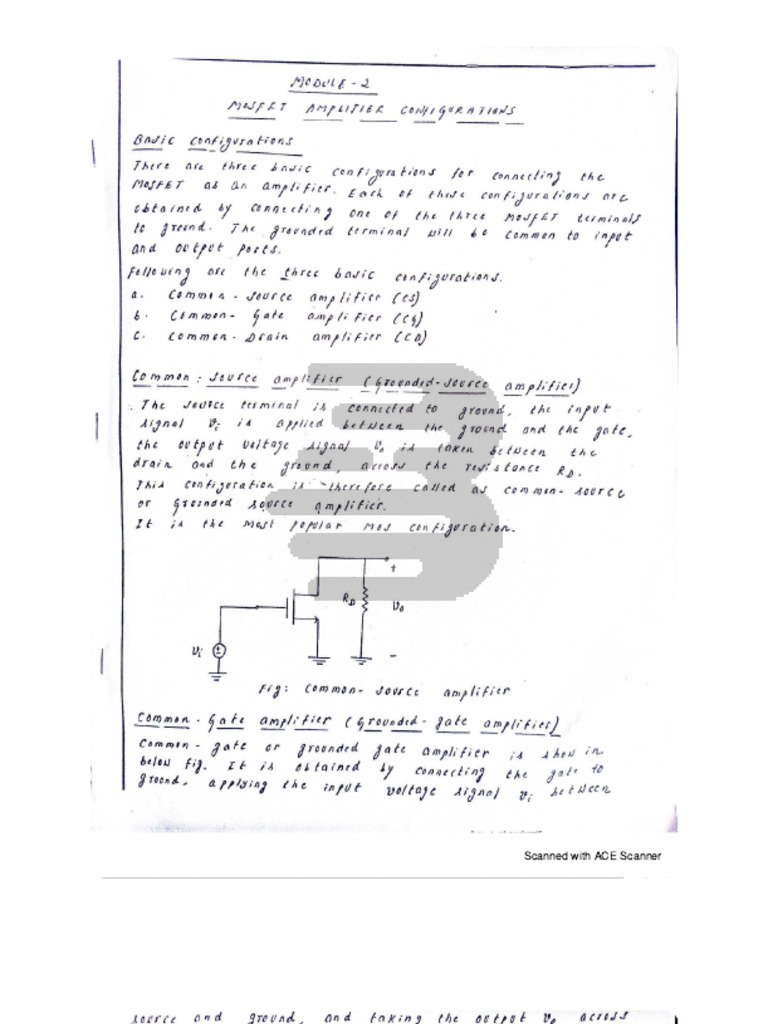 MODULE-2
MOSFET AMPLIFIER CONFIGURATIONS
Basic Configurations
There are three basic configurations for connecting the
MOSFET as an amplifier. Each of these configurations are
obtained by connecting one of the three MOSFET terminals
to ground. The grounded terminal will be common to input
and output ports.
Following are the three basic configurations.
a. Common-source amplifier (CS)
b. Common-Gate amplifier (CG)
c. Common-Drain amplifier (CD)
Common-source amplifier (Grounded-source amplifier)
The source terminal is connected to ground, the input
signal vi is applied between the ground and the gate,
the output voltage signal vo is taken between the
drain and the ground, across the resistance RD.
This configuration is therefore called as common-source
or Grounded source amplifier.
It is the most popular MOS configuration.
+
RD
vo
vi
-
Fig: Common-source amplifier
Common-Gate amplifier (Grounded-gate amplifier)
Common-gate or grounded gate amplifier is show in
below fig. It is obtained by connecting the gate to
ground, applying the input voltage signal vi between
Scanned with ACE Scanner
source and ground, and taking the output vo across